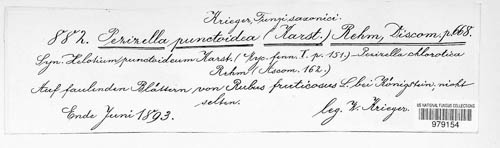 Krieger, Fungi saxonici.
882. Pezizella punctoidea (Karst.) Rehm, Discom. p. 668.
Syn. Helotium punctoideum Karst. (Myc. fenn. I. p. 151.) – Pezizella chlorotica
Rehm. (Ascom. 162.)
Auf faulenden Blättern von Rubus fruticosus L. bei Königstein, nicht
selten.
Ende Juni 1893. leg. W. Krieger.
US NATIONAL FUNGUS COLLECTIONS
979154